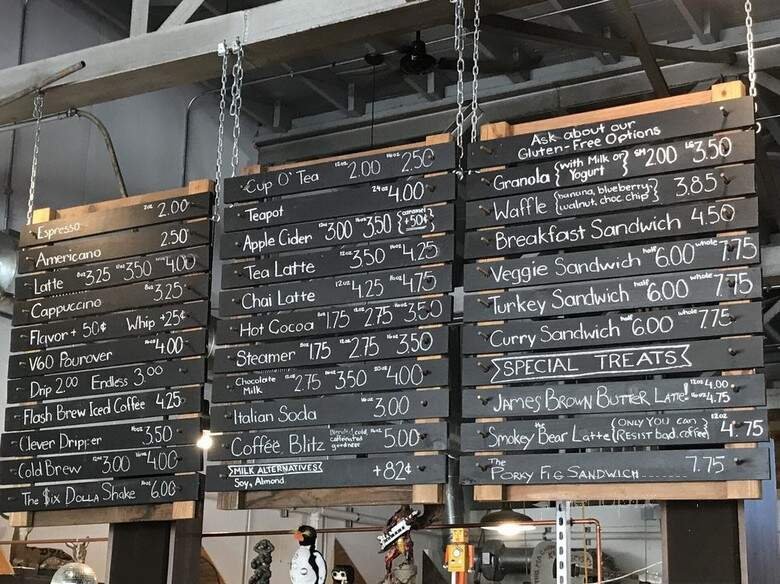 Espresso 2oz 2.00
Americano 2.50
Latte 8oz 3.25 12oz 3.50 16oz 4.00
Cappuccino 8oz 3.25
Flavor + 50¢ Whip +25¢
V60 Pourover 16oz 4.00
Drip 2.00 Endless 3.00
Flash Brew Iced Coffee 4.25
Clever Dripper 16oz 3.50
Cold Brew 12oz 3.00 16oz 4.00
The $ix Dolla Shake 6.00
Cup O' Tea 12oz 2.00 16oz 2.50
Teapot 24oz 4.00
Apple Cider 12oz 3.00 16oz 3.50 {caramel +50¢}
Tea Latte 12oz 3.50 16oz 4.25
Chai Latte 12oz 4.25 16oz 4.75
Hot Cocoa 8oz 1.75 12oz 2.75 16oz 3.50
Steamer 8oz 1.75 12oz 2.75 16oz 3.50
Chocolate Milk 8oz 2.75 3.50 4.00
Italian Soda 16oz 3.00
Coffee Blitz Blended, cold, caffeinated goodness 16oz 5.00
MILK ALTERNATIVES
Soy, Almond +82¢
Ask about our
Gluten-Free Options
Granola {with Milk or Yogurt} SM 2.00 LG 3.50
Waffle {banana, blueberry, walnut, choc chip} 3.85
Breakfast Sandwich 4.50
Veggie Sandwich half 6.00 whole 7.75
Turkey Sandwich half 6.00 whole 7.75
Curry Sandwich half 6.00 whole 7.75
SPECIAL TREATS
JAMES BROWN BUTTER LATTE! 12oz 4.00 16oz 4.75
Smokey the Bear Latte {ONLY YOU can RESIST bad coffee} 12oz 4.75
The PORKY FIG SANDWICH 7.75